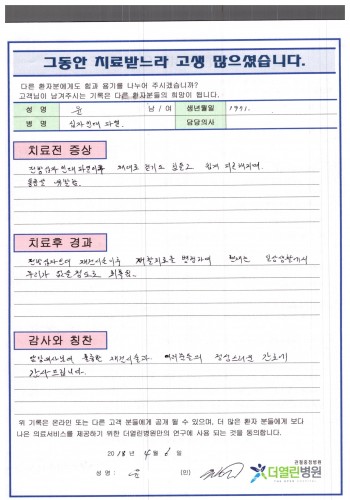 그동안 치료받느라 고생 많으셨습니다.
다른 환자분에게도 힘과 용기를 나누어 주시겠습니까?
고객님이 남겨주시는 기록은 다른 환자분들의 희망이 됩니다.
성 명 윤 남 / 여 생년월일 1991.
병 명 십자인대 파열. 담당의사
치료전 증상
전방십자인대 파열이후 제대로 걷기도
치료후 경과
전방십자인대 재건이후 재활치료를 병행하여 현재는 일상생활에서
무리가 없을정도로 회복됨.
감사와 칭찬
훌륭한 재건수술과 정성스러운 간호에
감사드립니다.
위 기록은 온라인 또는 다른 고객 분들에게 공개 될 수 있으며, 더 많은 환자 분들에게 보다
나은 의료서비스를 제공하기 위한 더열린병원만의 연구에 사용 되는 것을 동의합니다.
2018 년 4 월 6 일
성 명 : 윤 (인)
관절중점병원
더열린병원